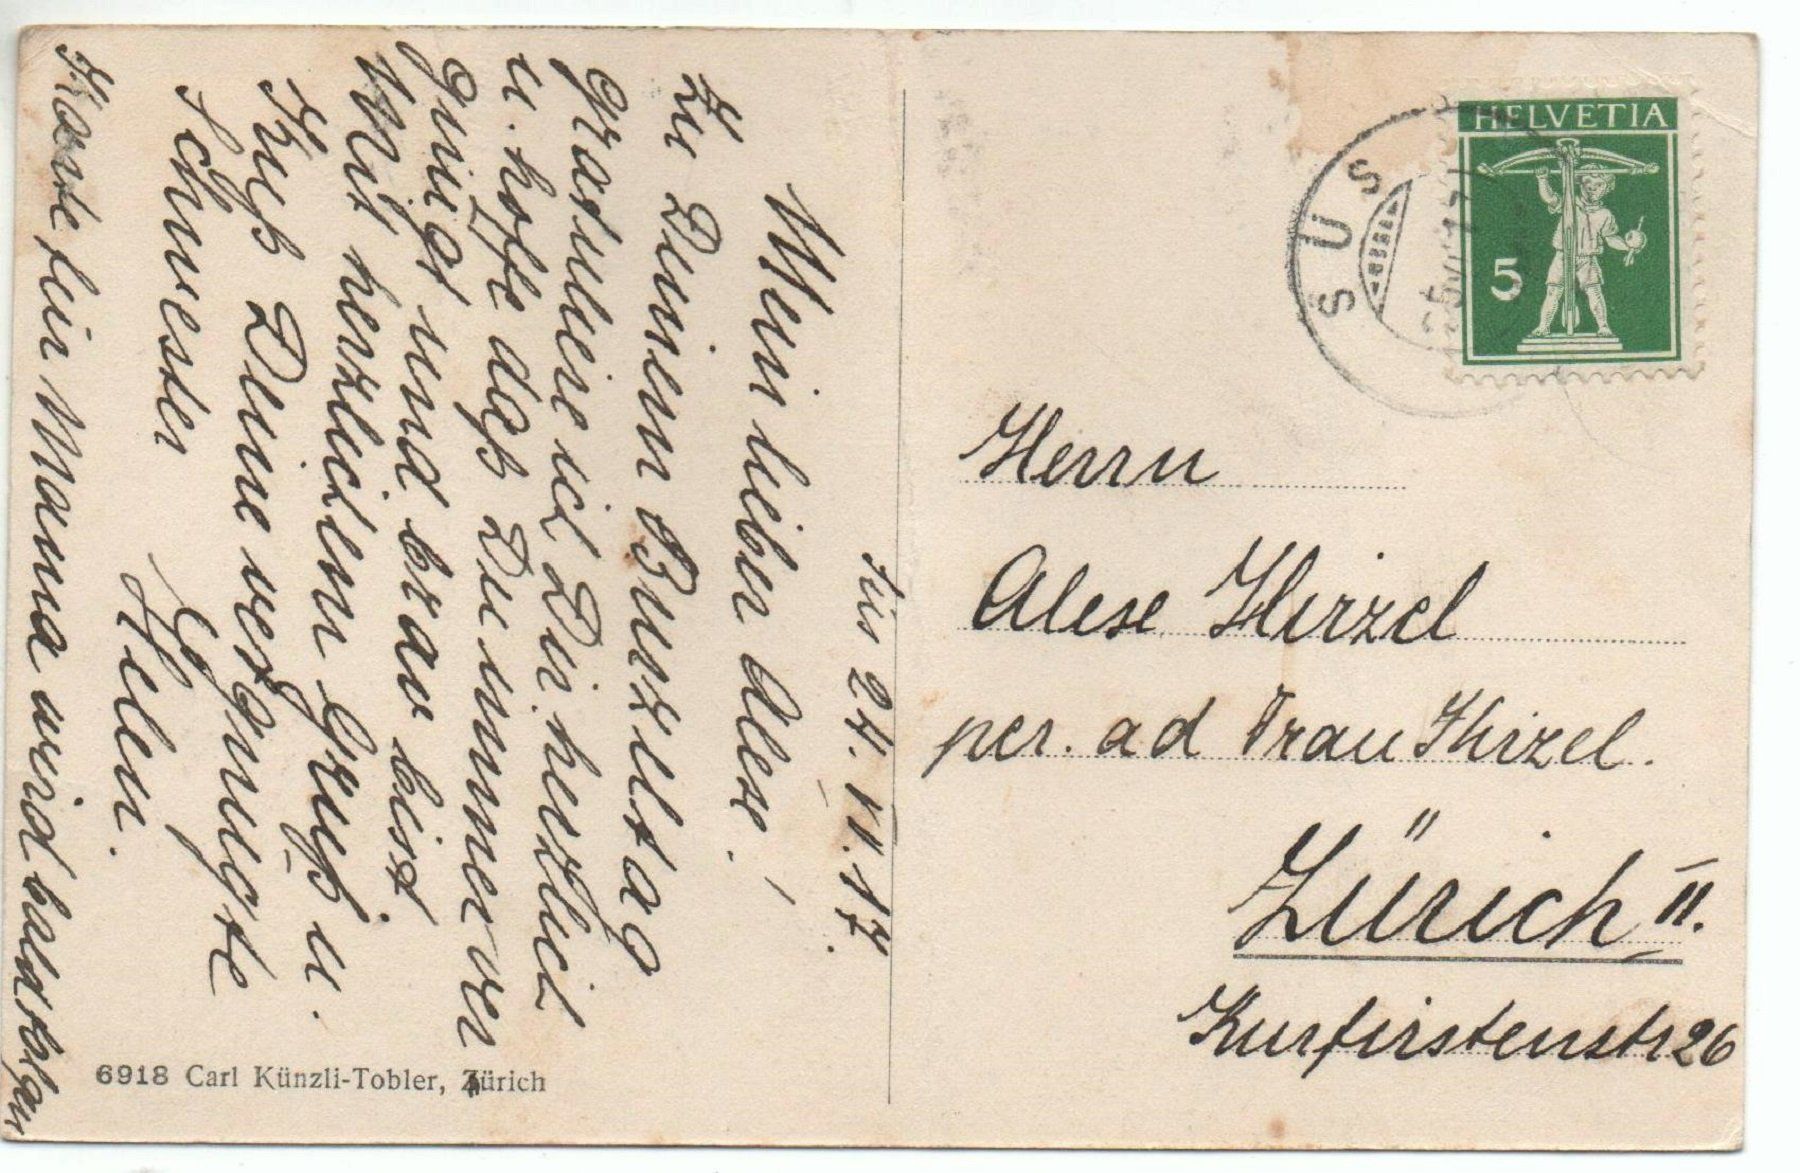 Süs 24. VI. 17.
Mein lieber Alese!
Zu Deinem Burzeltag
gratuliere ich Dir herzlich
u. hoffe daß Du immer ver
gnügt und brav bist
Mit herzlichem Gruß u.
Kuß Deine vergnügte
Schwester
Helen.
Karte für Mama wird bald folgen
6918 Carl Künzli-Tobler, Zürich
HELVETIA
5
SÜS
Herrn
Alese Hirzel
per. ad Frau Hirzel.
Zürich II.
Kurfirstenstr 26